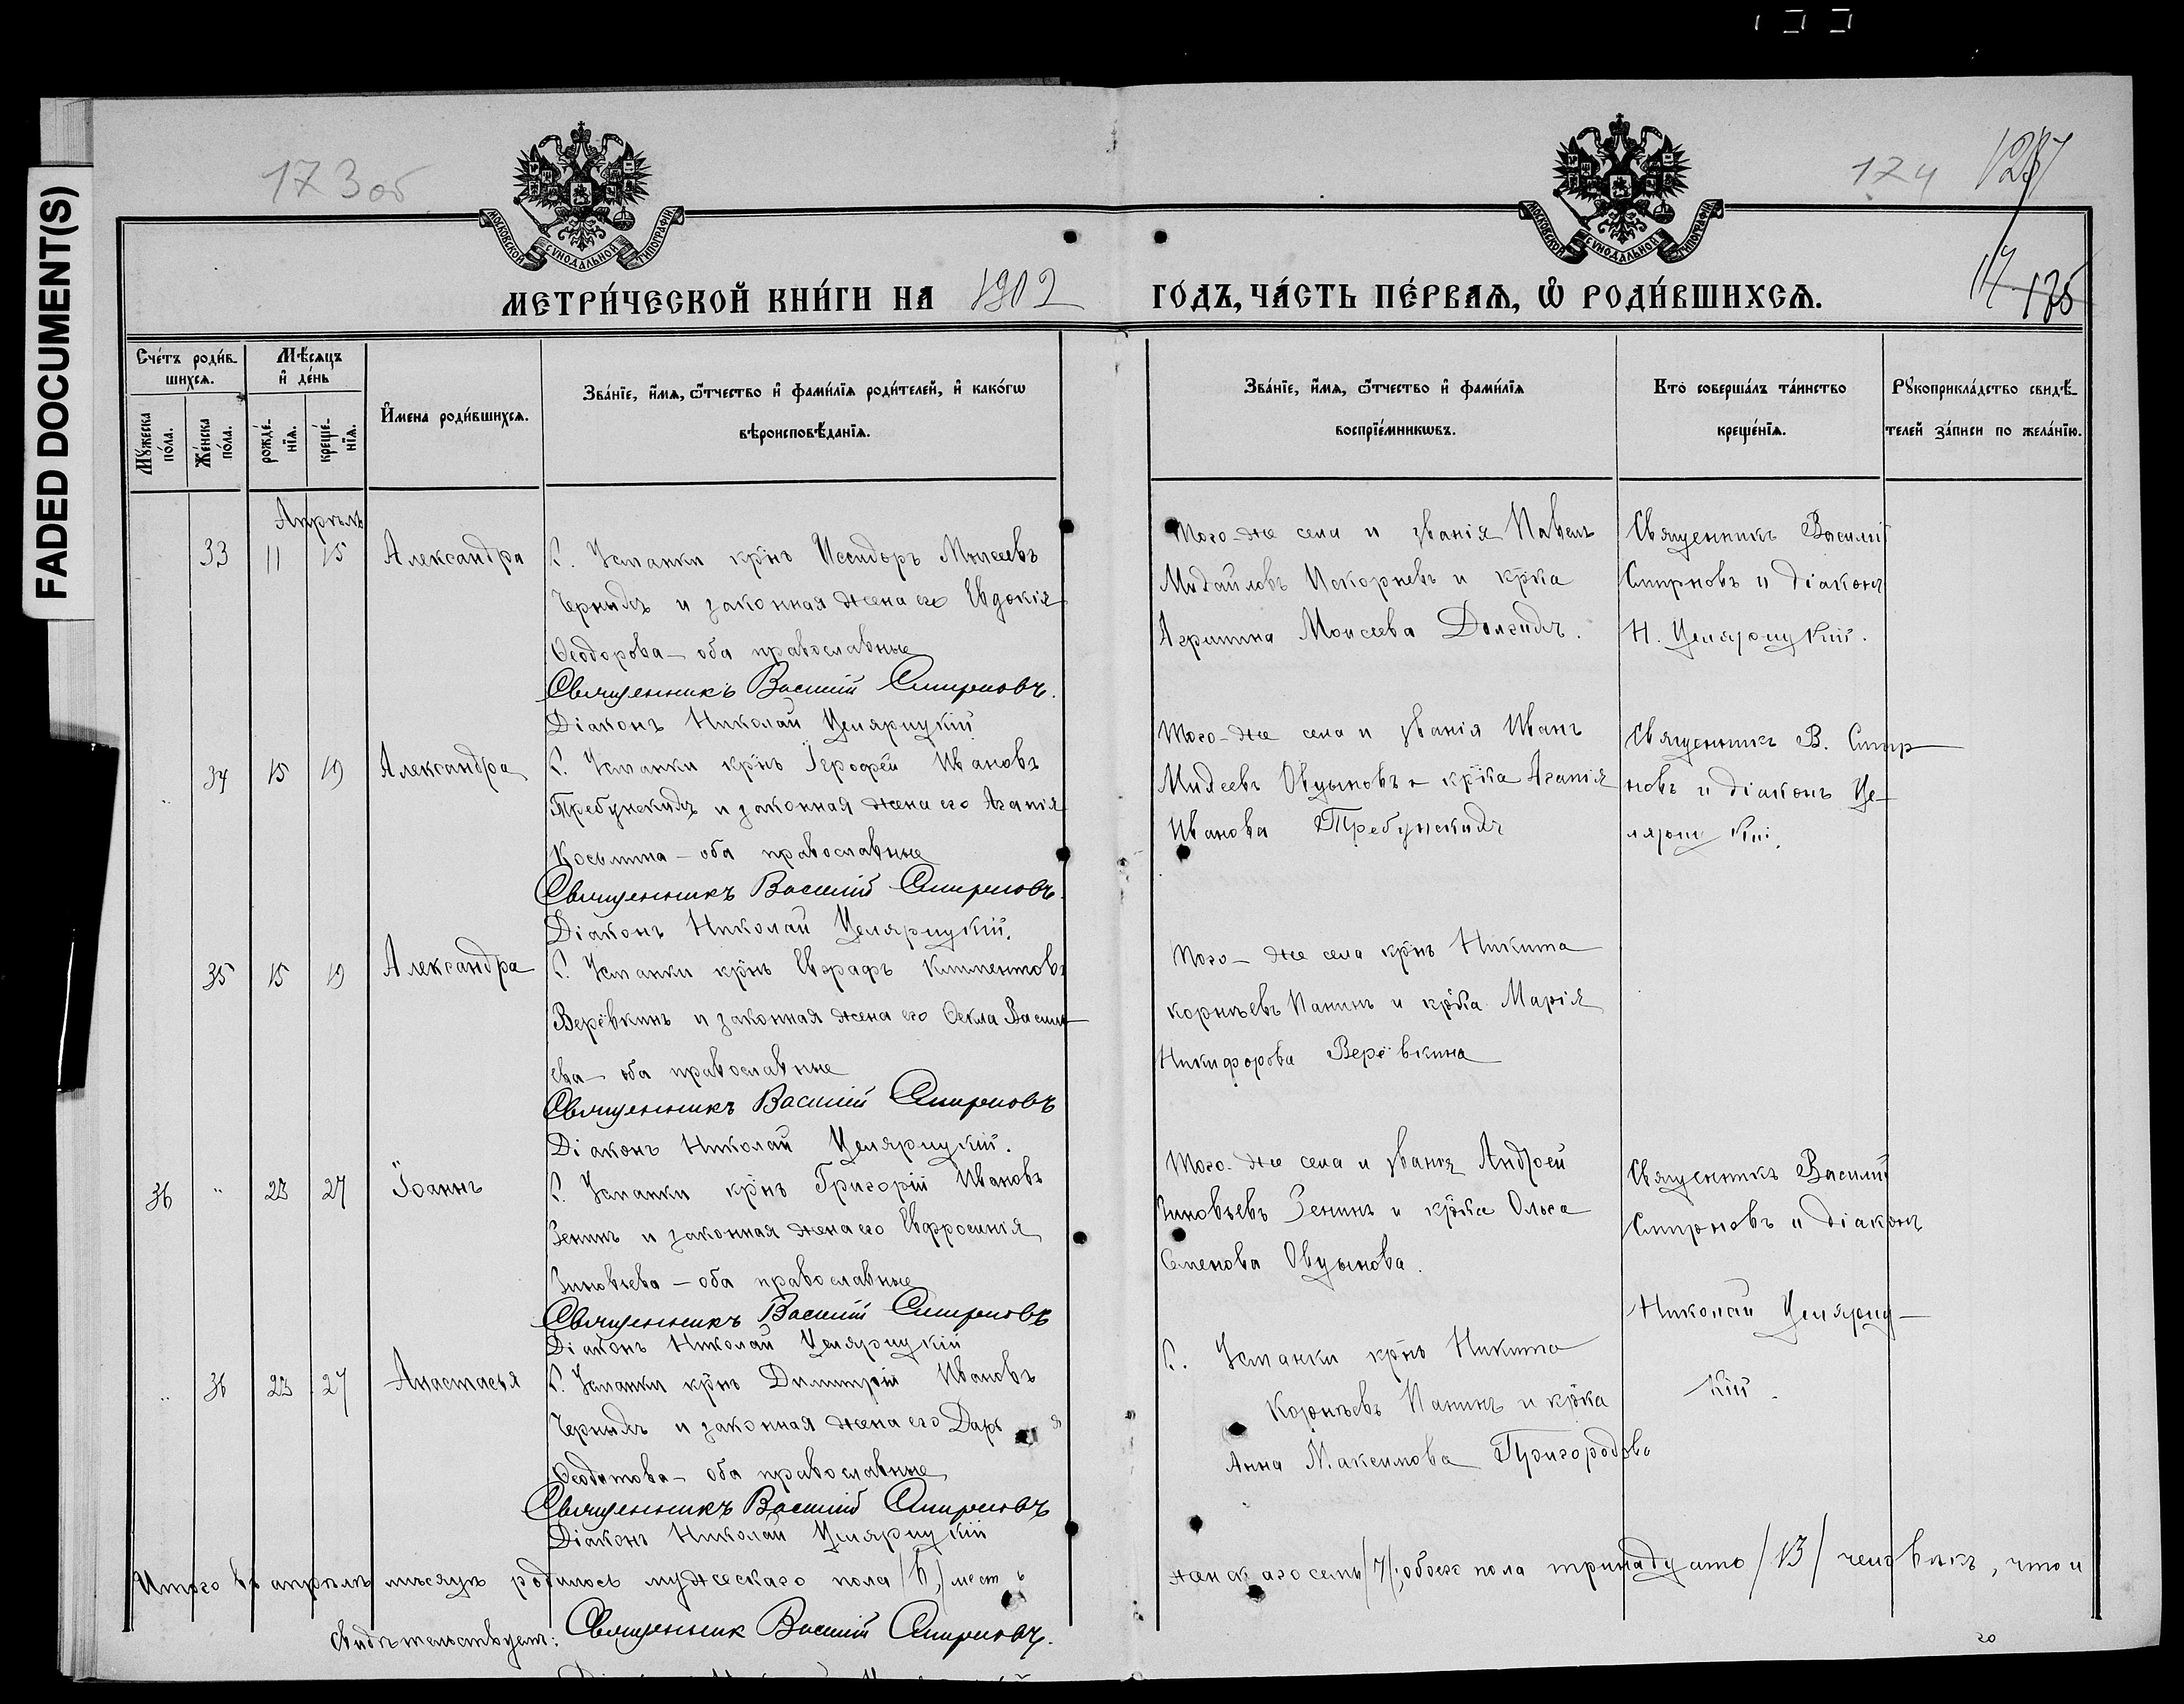 FADED DOCUMENT(S)
173об
174
МОСКОВСКОЙ СѴНОДАЛЬНОЙ ТИПОГРАФІИ
МОСКОВСКОЙ СѴНОДАЛЬНОЙ ТИПОГРАФІИ
МЕТРИ́ЧЕСКОЙ КНИ́ГИ НА 1902 ГО́ДЪ, ЧА́СТЬ ПЕ́РВАѦ, Ѿ РОДИ́ВШИХСѦ.
175
Сче́тъ роди́в-
шихсѧ.
Мѣ́сѧцъ
и҆ де́нь
Мꙋ́жеска по́ла.
Же́нска по́ла.
рожде́-
нїѧ.
креще́-
нїѧ.
И҆мена роди́вшихсѧ.
Зва́нїе, и҆́мѧ, ѻ҆́тчество и҆ фами́лїѧ роди́телей, и҆ како́гѡ
вѣроисповѣ́данїѧ.
Зва́нїе, и҆́мѧ, ѻ҆́тчество и҆ фами́лїѧ
воспрїе́мникѡвъ.
Кто̀ соверша́лъ та́инство
креще́нїѧ.
Рꙋкоприкла́дство свидѣ́-
телей за́писи по жела́нїю.
Апрѣль
33 11 15 Александра
С. Усманки кр-нъ Исидоръ Моисеевъ
Черныхъ и законная жена его Евдокія
Ѳеодорова — оба православные
Священникъ Василій Смирновъ.
Діаконъ Николай Целярицкій
Того-же села и званія Павелъ
Михайловъ Искорневъ и кр-ка
Агрипина Моисеева Долгихъ.
Священникъ Василій
Смирновъ и діаконъ
Н. Целярицкій.
34 15 19 Александра
С. Усманки кр-нъ Іерофей Ивановъ
Требунскихъ и законная жена его Агапія
Косьмина — оба православные
Священникъ Василій Смирновъ.
Діаконъ Николай Целярицкій.
Того-же села и званія Иванъ
Михеевъ Овцыновъ и кр-ка Агапія
Иванова Требунскихъ
Священникъ В. Смир-
новъ и діаконъ Це-
лярицкій.
35 15 19 Александра
С. Усманки кр-нъ Евграфъ Климентовъ
Верёвкинъ и законная жена его Ѳекла Василь-
ева — оба православные
Священникъ Василій Смирновъ
Діаконъ Николай Целярицкій.
Того-же села кр-нъ Никита
Корнѣевъ Панинъ и кр-ка Марія
Никифорова Верёвкина
36 " 23 27 Іоаннъ
С. Усманки кр-нъ Григорій Ивановъ
Зенинъ и законная жена его Евфросинія
Зиновьева — оба православные
Священникъ Василій Смирновъ
Діаконъ Николай Целярицкій
Того-же села и званія Андрей
Зиновьевъ Зенинъ и кр-ка Ольга
Семенова Овцынова.
Священникъ Василій
Смирновъ и діаконъ
Николай Целяриц-
кій.
" 36 23 27 Анастасья
С. Усманки кр-нъ Димитрій Ивановъ
Черныхъ и законная жена его Дарья
Ѳеодотова — оба православные
Священникъ Василій Смирновъ
Діаконъ Николай Целярицкій
С. Усманки кр-нъ Никита
Корнѣевъ Панинъ и кр-ка
Анна Максимова Пригородова
Итого въ апрѣлѣ мѣсяцѣ родилось мужескаго пола /6/ шесть женскаго семь /7/; обоего пола тринадцать /13/ человѣкъ, что и
свидѣтельствуемъ: Священник Василій Смирновъ.
20